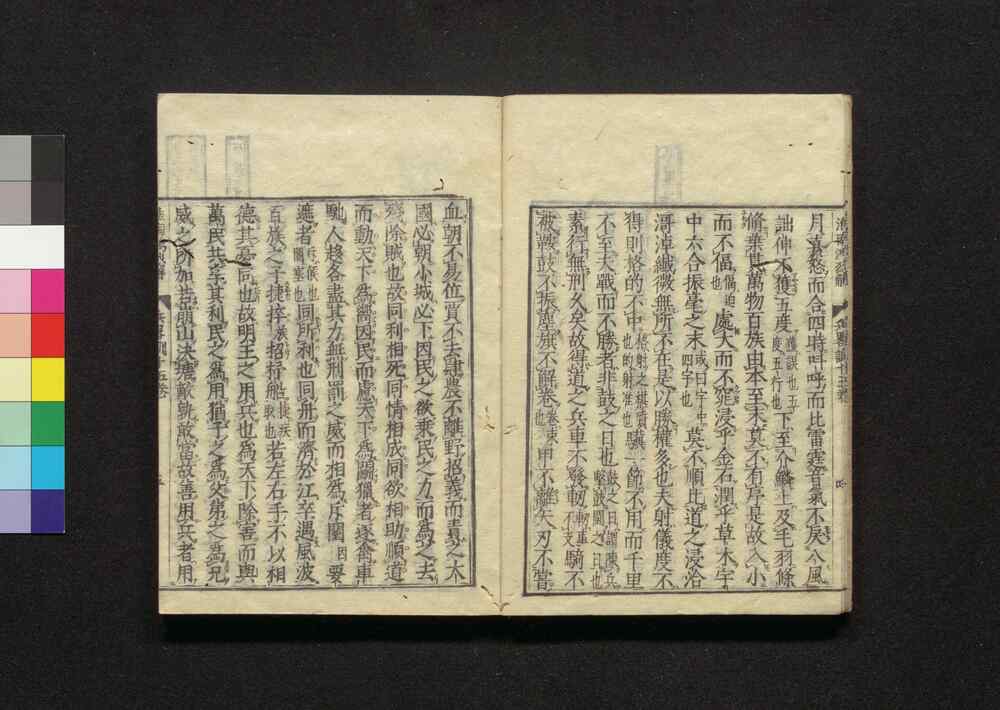 月虛愁而合四時叫呼而比雷霆音氣不戾八風
詘伸不獲五度獲誤也五度五行也下至介鱗上及毛羽條
脩葉貫萬物百族由本至末莫不有序是故入小
而不偪偪迫也處大而不窕浸乎金石潤乎草木宇
中六合振毫之末或曰宇中四字也莫不順比道之浸洽
滒淖纖微無所不在是以勝權多也夫射儀度不
得則格的不中格射之椹質也的射准也驥一節不用而千里
不至夫戰而不勝者非鼓之日也鼓之日謂陳兵擊鼓鬭之日也
素行無刑久矣故得道之兵車不發軔軔車下支騎不
被鞍鼓不振塵旗不解卷卷束也甲不離矢刃不嘗
血朝不易位賈不去肆農不離野招義而責之大
國必朝小城必下因民之欲乘民之力而爲之去
殘除賊也故同利相死同情相成同欲相助順道
而動天下爲嚮因民而慮天下爲鬭獵者逐禽車
馳人趍各盡其力無刑罰之威而相爲斥闉因要
遮者斥候也闉塞也同所利也同舟而濟於江卒遇風波
百族之子捷捽招杼船捷疾取也若左右手不以相
德其憂同也故明王之用兵也爲天下除害而與
萬民共享其利民之爲用猶子之爲父弟之爲兄
威之所加若崩山決塘敵孰敢當故善用兵者用